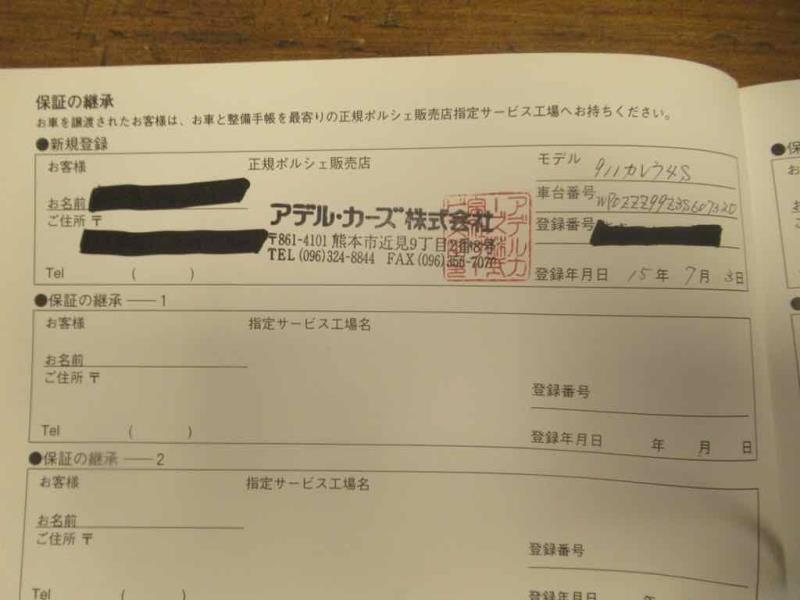 保証の継承
お車を譲渡されたお客様は、お車と整備手帳を最寄りの正規ポルシェ販売店指定サービス工場へお持ちください。
●新規登録
お客様
正規ポルシェ販売店
モデル 911カレラ4S
お名前
車台番号 WP0ZZZ99Z3S607320
ご住所 〒
アデル・カーズ株式会社
〒861-4101 熊本市近見9丁目2番8号
TEL (096)324-8844 FAX (096)356-7070
登録番号
Tel ( )
登録年月日 15年 7月 3日
●保証の継承 ── 1
お客様
指定サービス工場名
お名前
ご住所 〒
登録番号
Tel ( )
登録年月日 年 月 日
●保証の継承 ── 2
お客様
指定サービス工場名
お名前
ご住所 〒
登録番号
Tel ( )
登録年月日 年